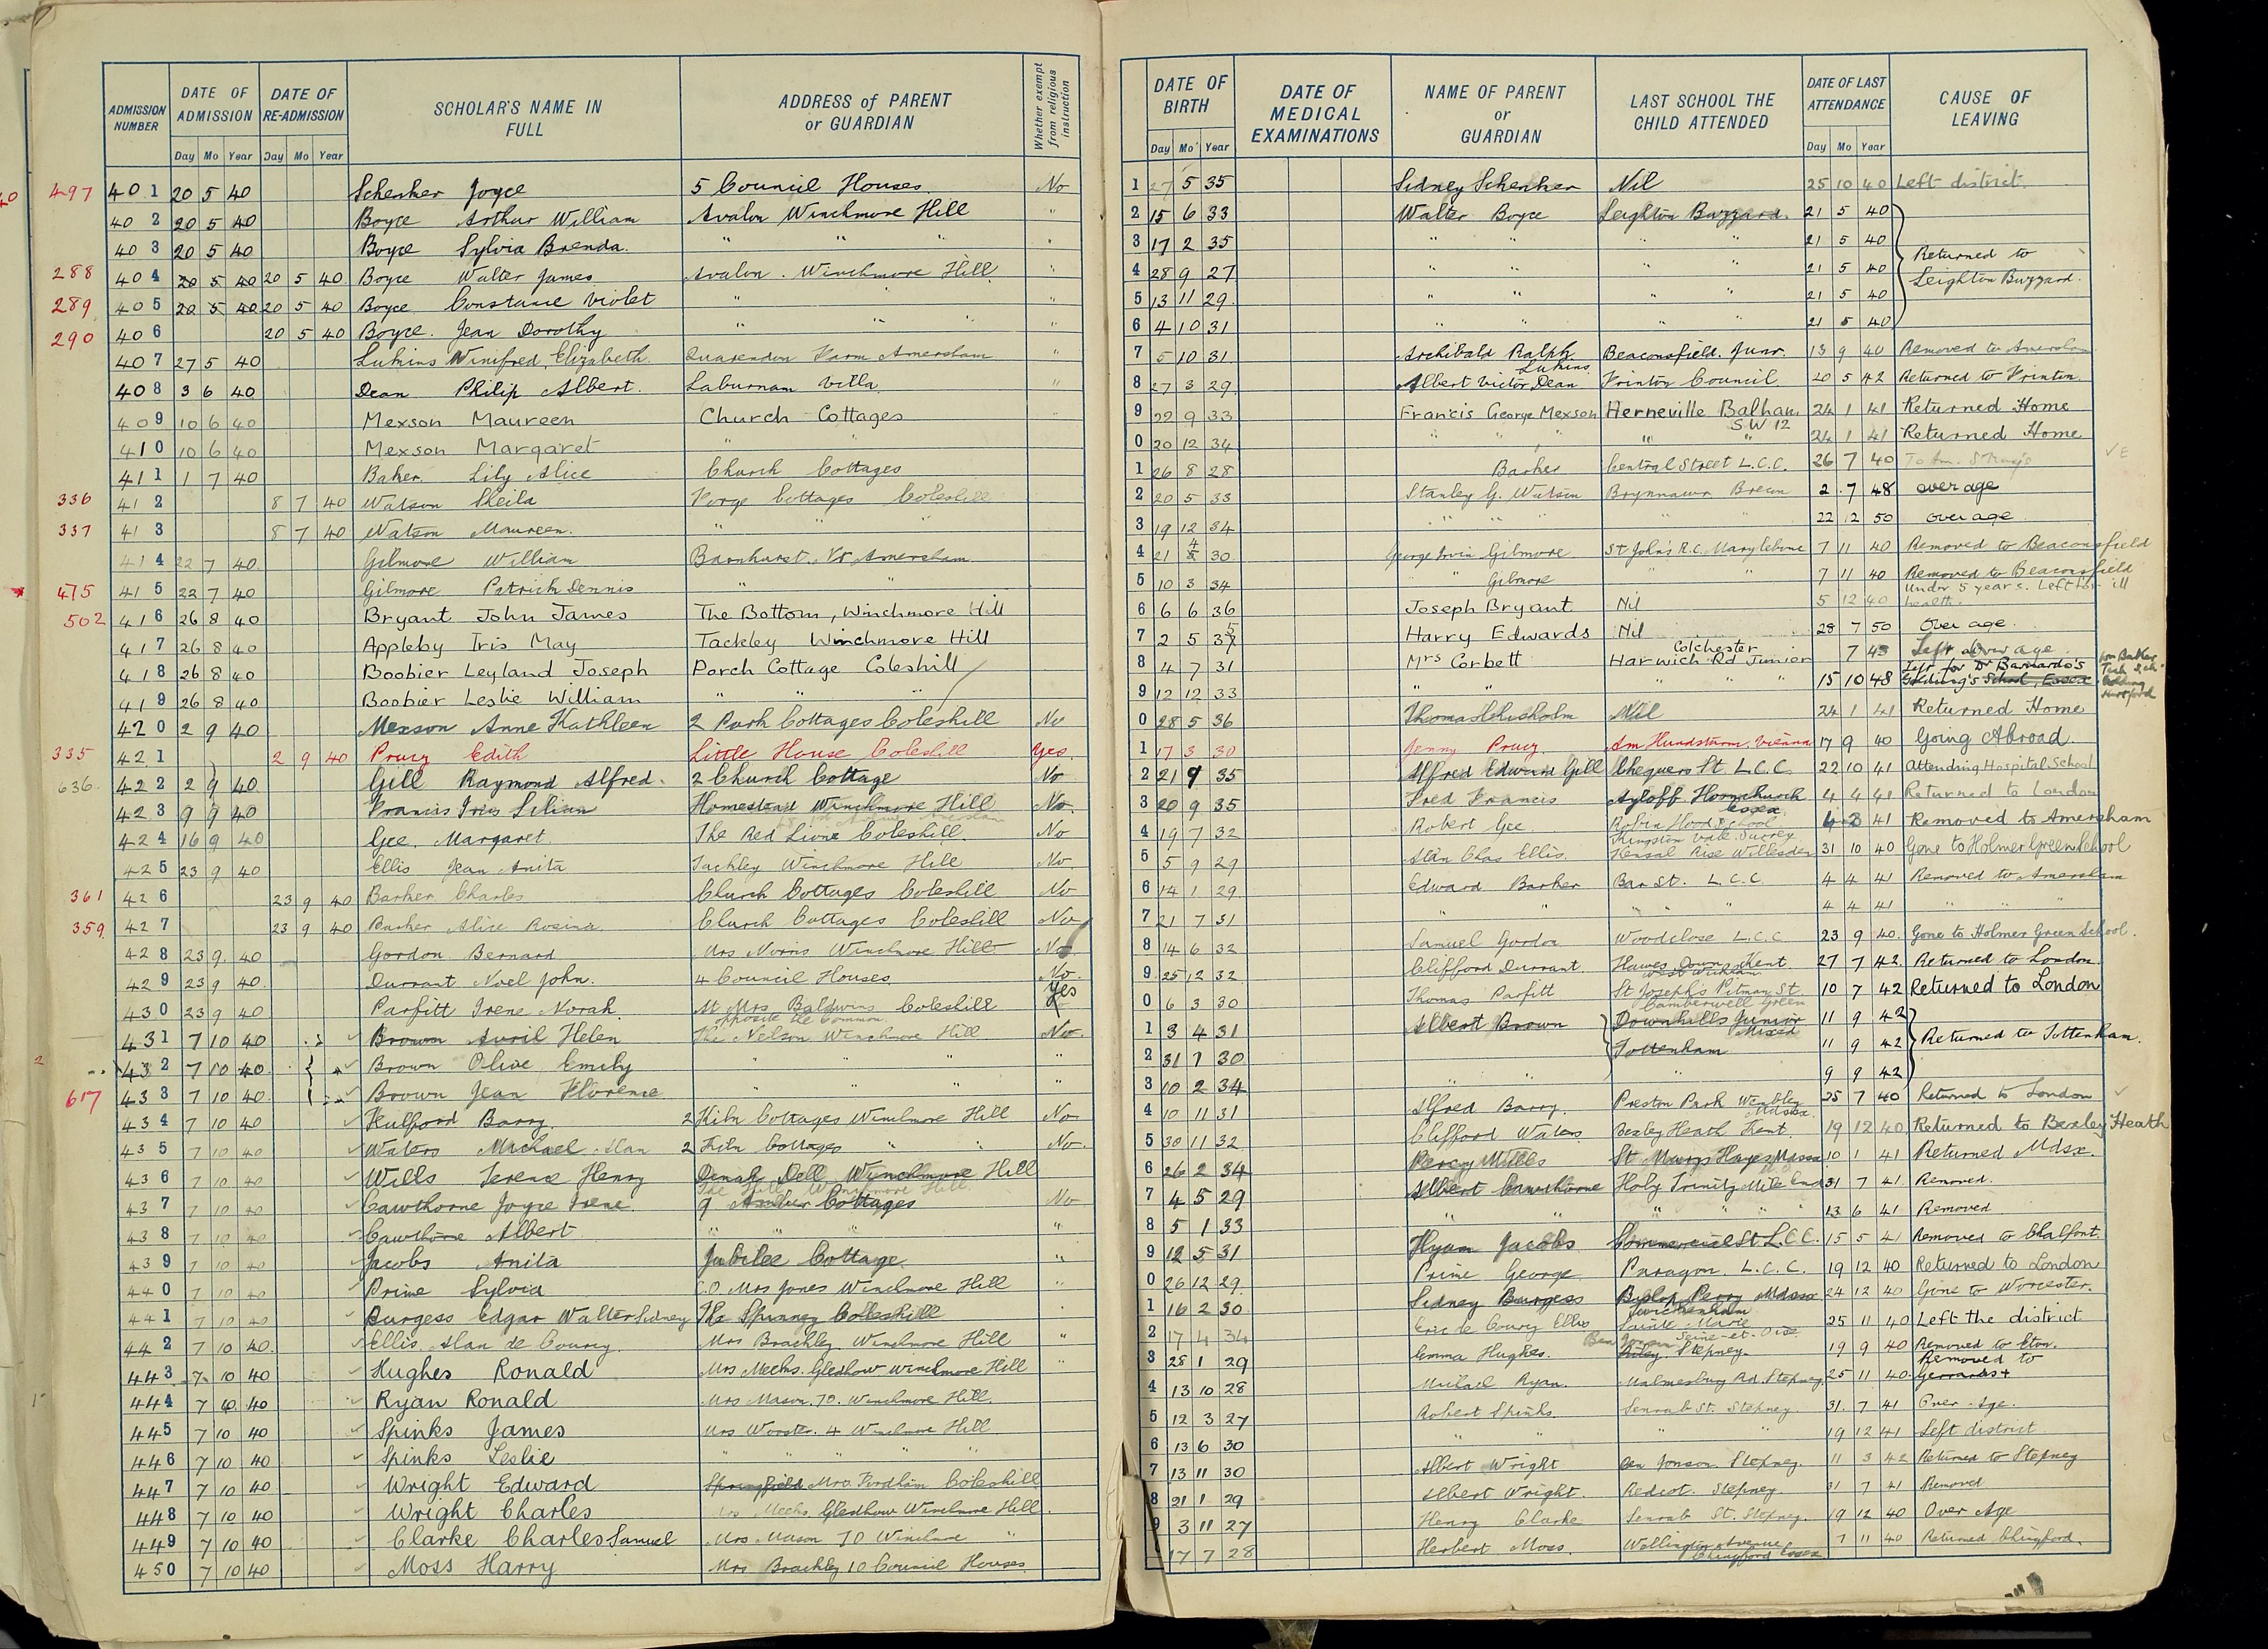 ADMISSION NUMBER | DATE OF ADMISSION Day Mo Year | DATE OF RE-ADMISSION Day Mo Year | SCHOLAR'S NAME IN FULL | ADDRESS of PARENT or GUARDIAN | Whether exempt from religious instruction | DATE OF BIRTH Day Mo Year | DATE OF MEDICAL EXAMINATIONS | NAME OF PARENT or GUARDIAN | LAST SCHOOL THE CHILD ATTENDED | DATE OF LAST ATTENDANCE Day Mo Year | CAUSE OF LEAVING
497 401 20 5 40 Schenker Joyce 5 Council Houses. No 1 27 5 35 Sidney Schenker Nil 25 10 40 Left district.
402 20 5 40 Boyce Arthur William Avalon Winchmore Hill " 2 15 6 33 Walter Boyce Leighton Buzzard. 21 5 40
403 20 5 40 Boyce Sylvia Brenda. " " " " 3 17 2 35 " " " " 21 5 40 Returned to
288 404 20 5 40 20 5 40 Boyce Walter James Avalon. Winchmore Hill " 4 28 9 27 " " " " 21 5 40 Leighton Buzzard.
289 405 20 5 40 20 5 40 Boyce Constance Violet " " " 5 13 11 29 " " " " 21 5 40
290 406 20 5 40 Boyce. Jean Dorothy " " " " 6 4 10 31 " " " " 21 5 40
407 27 5 40 Lukins Winifred, Elizabeth Quarendon Farm Amersham " 7 5 10 31 Archibald Ralph Lukins Beaconsfield. Junr. 13 9 40 Removed to Amersham
408 3 6 40 Dean Philip Albert. Laburnam Villa " 8 27 3 29 Albert Victor Dean Frinton Council 20 5 42 Returned to Frinton.
409 10 6 40 Mexson Maureen Church Cottages 9 22 9 33 Francis George Mexson Herneville Balham, SW 12 24 1 41 Returned Home
410 10 6 40 Mexson Margaret " " 0 20 12 34 " " " " " 24 1 41 Returned Home
411 1 7 40 Baker. Lily Alice Church Cottages 1 26 8 28 Central Street L.C.C. 26 7 40
336 412 8 7 40 Watson Sheila Forge Cottages Coleshill 2 20 5 33 Stanley G. Watson Brynmawr Brecon 2 7 48 over age
337 413 8 7 40 Watson Maureen. " " " 3 19 12 34 " " " " " 22 12 50 over age
414 22 7 40 Gilmore William Barnhurst. Nr Amersham 4 21 4 30 George Irvin Gilmore St John's R.C. Marylebone 7 11 40 Removed to Beaconsfield
475 415 22 7 40 Gilmore Patrick Dennis " " 5 10 3 34 " Gilmore " " 7 11 40 Removed to Beaconsfield
502 416 26 8 40 Bryant John James The Bottom, Winchmore Hill 6 6 6 36 Joseph Bryant Nil 5 12 40 Under 5 years. Left for ill health.
417 26 8 40 Appleby Iris May Tackley Winchmore Hill 7 2 5 35 Harry Edwards Nil 28 7 50 Over age.
418 26 8 40 Boobier Leyland Joseph Porch Cottage Coleshill 8 4 7 31 Mrs Corbett Colchester Harwich Rd Junior 7 45 Left Over age
419 26 8 40 Boobier Leslie William " " " 9 12 12 33 " " " " " 15 10 48 Left for Dr Barnardo's Goldings School, Essex
420 2 9 40 Mexson Anne Kathleen 2 Park Cottages Coleshill No 0 28 5 36 Thomas Chisholm Nil 24 1 41 Returned Home
335 421 2 9 40 Prucz Edith Little House Coleshill Yes 1 17 3 30 Jenny Prucz. Am Hundsturm. Vienna 17 9 40 Going Abroad
636 422 2 9 40 Gill Raymond Alfred. 2 Church Cottage No 2 21 9 35 Alfred Edward Gill Chequers St. L.C.C. 22 10 41 Attending Hospital School
423 9 9 40 Francis Iris Lilian Homestead Winchmore Hill No. 3 20 9 35 Fred Francis Ayloff Hornchurch Essex 4 4 41 Returned to London
424 16 9 40 Gee. Margaret. The Red Lion Coleshill. No 4 19 7 32 Robert Gee Robin Hood School Kingston Vale. Surrey 4 3 41 Removed to Amersham
425 23 9 40 Ellis Jean Anita Tackley Winchmore Hill No 5 5 9 29 Alan Chas Ellis. Kensal Rise Willesden 31 10 40 Gone to Holmer Green School
361 426 23 9 40 Barker Charles Church Cottages Coleshill No 6 14 1 29 Edward Barker Bar St. L.C.C 4 4 41 Removed to Amersham
359 427 23 9 40 Barker Alice Rosina. Church Cottages Coleshill No 7 21 7 31 " " " " " 4 4 41 " " "
428 23 9 40 Gordon Bernard Mrs Norris Winchmore Hill No 8 14 6 32 Samuel Gordon Woodclose L.C.C 23 9 40 Gone to Holmer Green School.
429 23 9 40 Durrant Noel John. 4 Council Houses No. 9 25 12 32 Clifford Durrant. Hawes Down Kent West Wickham 27 7 42 Returned to London.
430 23 9 40 Parfitt Irene Norah. At Mrs Baldwins Coleshill opposite the Common Yes 0 6 3 30 Thomas Parfitt St Joseph's Pitman St Camberwell Green 10 7 42 Returned to London
431 7 10 40 Brown Avril Helen The Nelson Winchmore Hill No. 1 3 4 31 Albert Brown Downhills Junior Mixed 11 9 42 Returned to Tottenham.
432 7 10 40 Brown Olive Emily " " " " 2 31 7 30 Tottenham 11 9 42
617 433 7 10 40 Brown Jean Florence " " " " 3 10 2 34 " " " 9 9 42
434 7 10 40 Fulford Barry. 2 Kiln Cottages Winchmore Hill No 4 10 11 31 Alfred Barry. Preston Park Wembley Mdsex. 25 7 40 Returned to London
435 7 10 40 Waters Michael Alan 2 Kiln Cottages " " No. 5 30 11 32 Clifford Waters Bexley Heath Kent. 19 12 40 Returned to Bexley Heath
436 7 10 40 Wills Terence Henry Dell Winchmore Hill 6 26 2 34 Percy Wills St Marys Hayes Mdsex 10 1 41 Returned Mdsx.
437 7 10 40 Cawthorne Joyce Irene. 9 Cottages No 7 4 5 29 Albert Cawthorne Holy Trinity Mile End 31 7 41 Removed.
438 7 10 40 Cawthorne Albert " " " " 8 5 1 33 " " " " " 13 6 41 Removed
439 7 10 40 Jacobs Anita Jubilee Cottage. " 9 12 5 31 Hyam Jacobs Commercial St L.C.C. 15 5 41 Removed to Chalfont.
440 7 10 40 Prime Sylvia C.O. Mrs Jones Winchmore Hill " 0 26 12 29 Prime George Paragon. L.C.C. 19 12 40 Returned to London
441 7 10 40 Burgess Edgar Walter Sidney The Spinney Coleshill 1 16 2 30 Sidney Burgess Bishop Perry Mdsex Twickenham 24 12 40 Gone to Worcester.
442 7 10 40 Ellis Alan de Courcy. Mrs Brackley Winchmore Hill " 2 17 4 34 Eric de Courcy Ellis Sainte Marie Seine-et-Oise 25 11 40 Left the district
443 7 10 40 Hughes Ronald Mrs Meeks. Gledhow Winchmore Hill " 3 28 1 29 Emma Hughes. Ben Jonson Stepney. 19 9 40 Removed to Eton.
444 7 10 40 Ryan Ronald Mrs Mason. 70. Winchmore Hill. 4 13 10 28 Michael Ryan. Malmesbury Rd. Stepney. 25 11 40 Removed to Gerrards +
445 7 10 40 Spinks James Mrs Wooster. 4 Winchmore Hill. 5 12 3 27 Robert Spinks. Senrab St. Stepney. 31 7 41 Over-Age.
446 7 10 40 Spinks Leslie " " " " 6 13 6 30 " " " " 19 12 41 Left district
447 7 10 40 Wright Edward Springfield Mrs. Fordham Coleshill 7 13 11 30 Albert Wright Ben Jonson. Stepney. 11 3 42 Returned to Stepney
448 7 10 40 Wright Charles Mrs Meeks Gledhow Winchmore Hill. 8 21 1 29 Albert Wright. Redcot. Stepney. 31 7 41 Removed
449 7 10 40 Clarke Charles Samuel Mrs Mason 70 Winchmore " 9 3 11 27 Henry Clarke Senrab St. Stepney. 19 12 40 Over Age
450 7 10 40 Moss Harry Mrs Brackley 10 Council Houses 17 7 28 Herbert Moss. Wellington Avenue Chingford Essex 7 11 40 Returned Chingford.